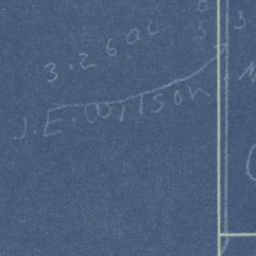 3.26 ac
J.E. Wilson